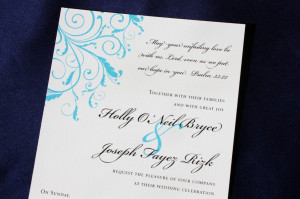 May your unfailing love be
with us, Lord, even as we put
our hope in you. Psalm 33:22
Together with their families
and with great joy
Holly O'Neil Bryce
&
Joseph Fayez Rizk
request the pleasure of your company
at their wedding celebration
On Sunday,